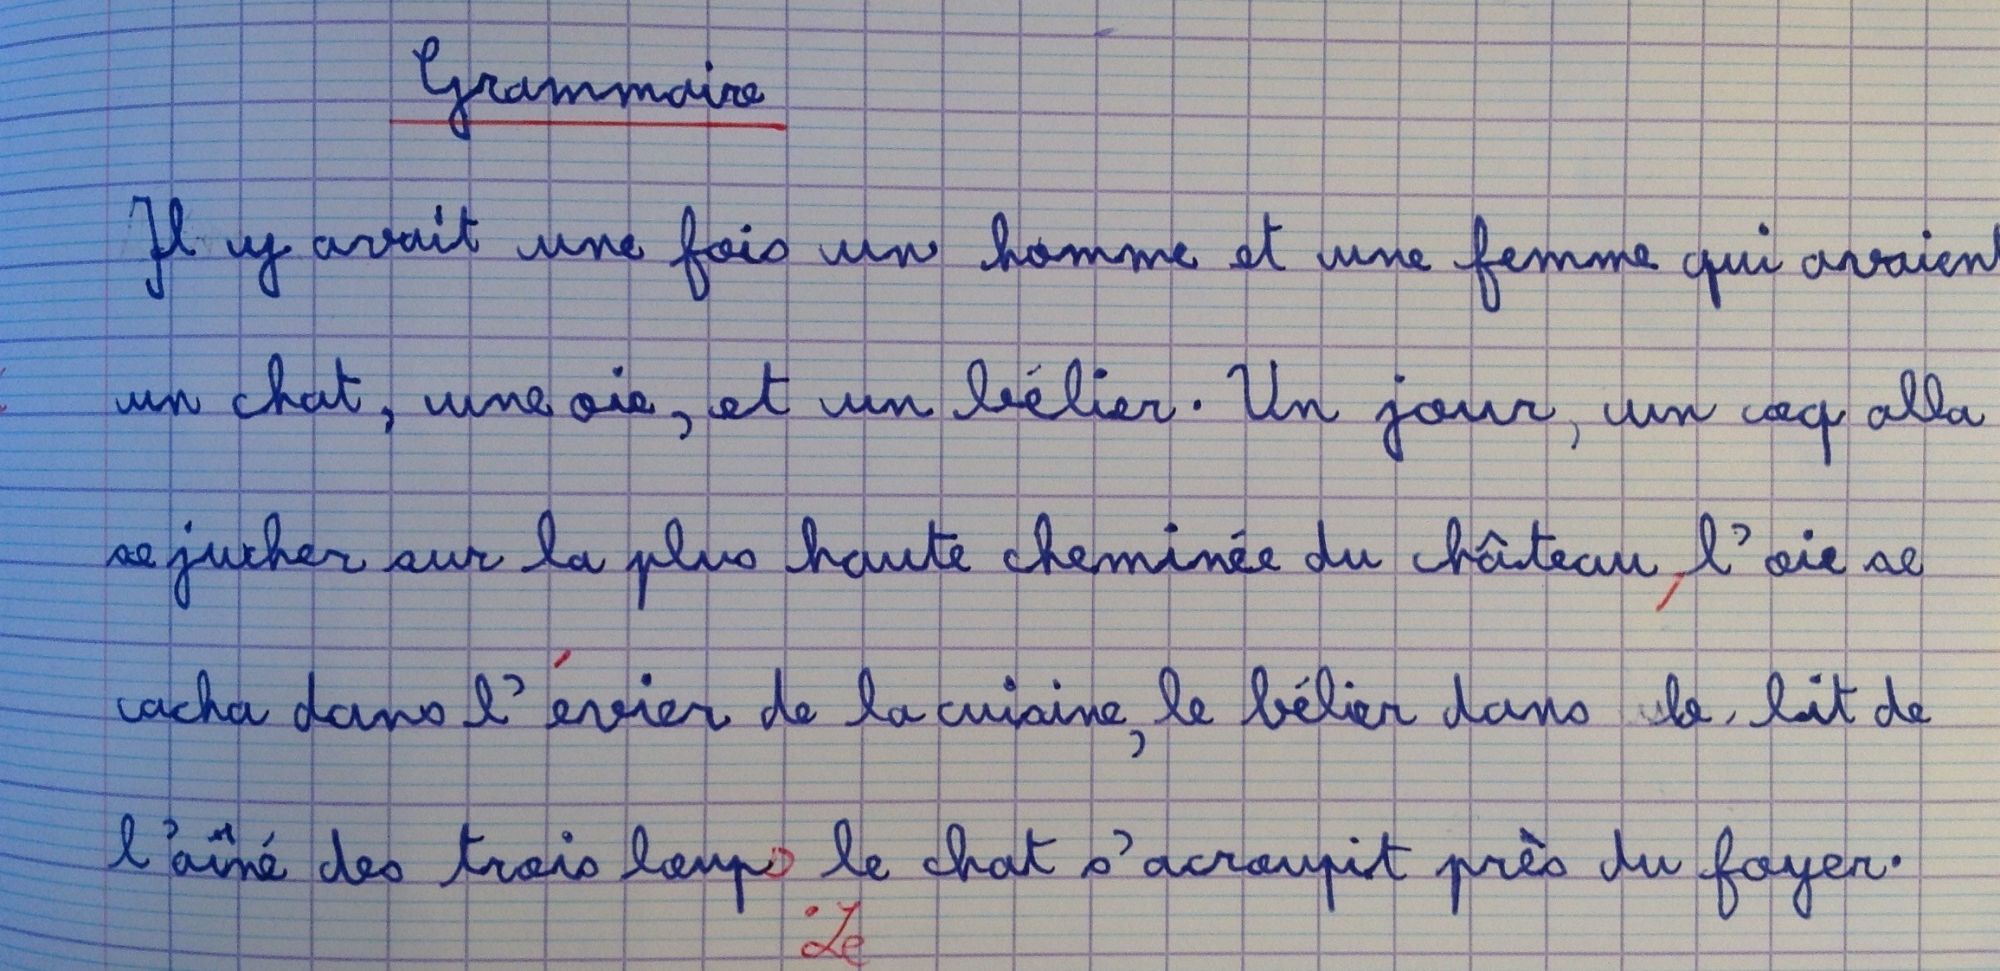 Grammaire
Il y avait une fois un homme et une femme qui avaient
un chat, une oie, et un bélier. Un jour, un coq alla
se jucher sur la plus haute cheminée du château, l'oie se
cacha dans l'évier de la cuisine, le bélier dans le lit de
l'aîné des trois loups le chat s'acroupit près du foyer.
. Le